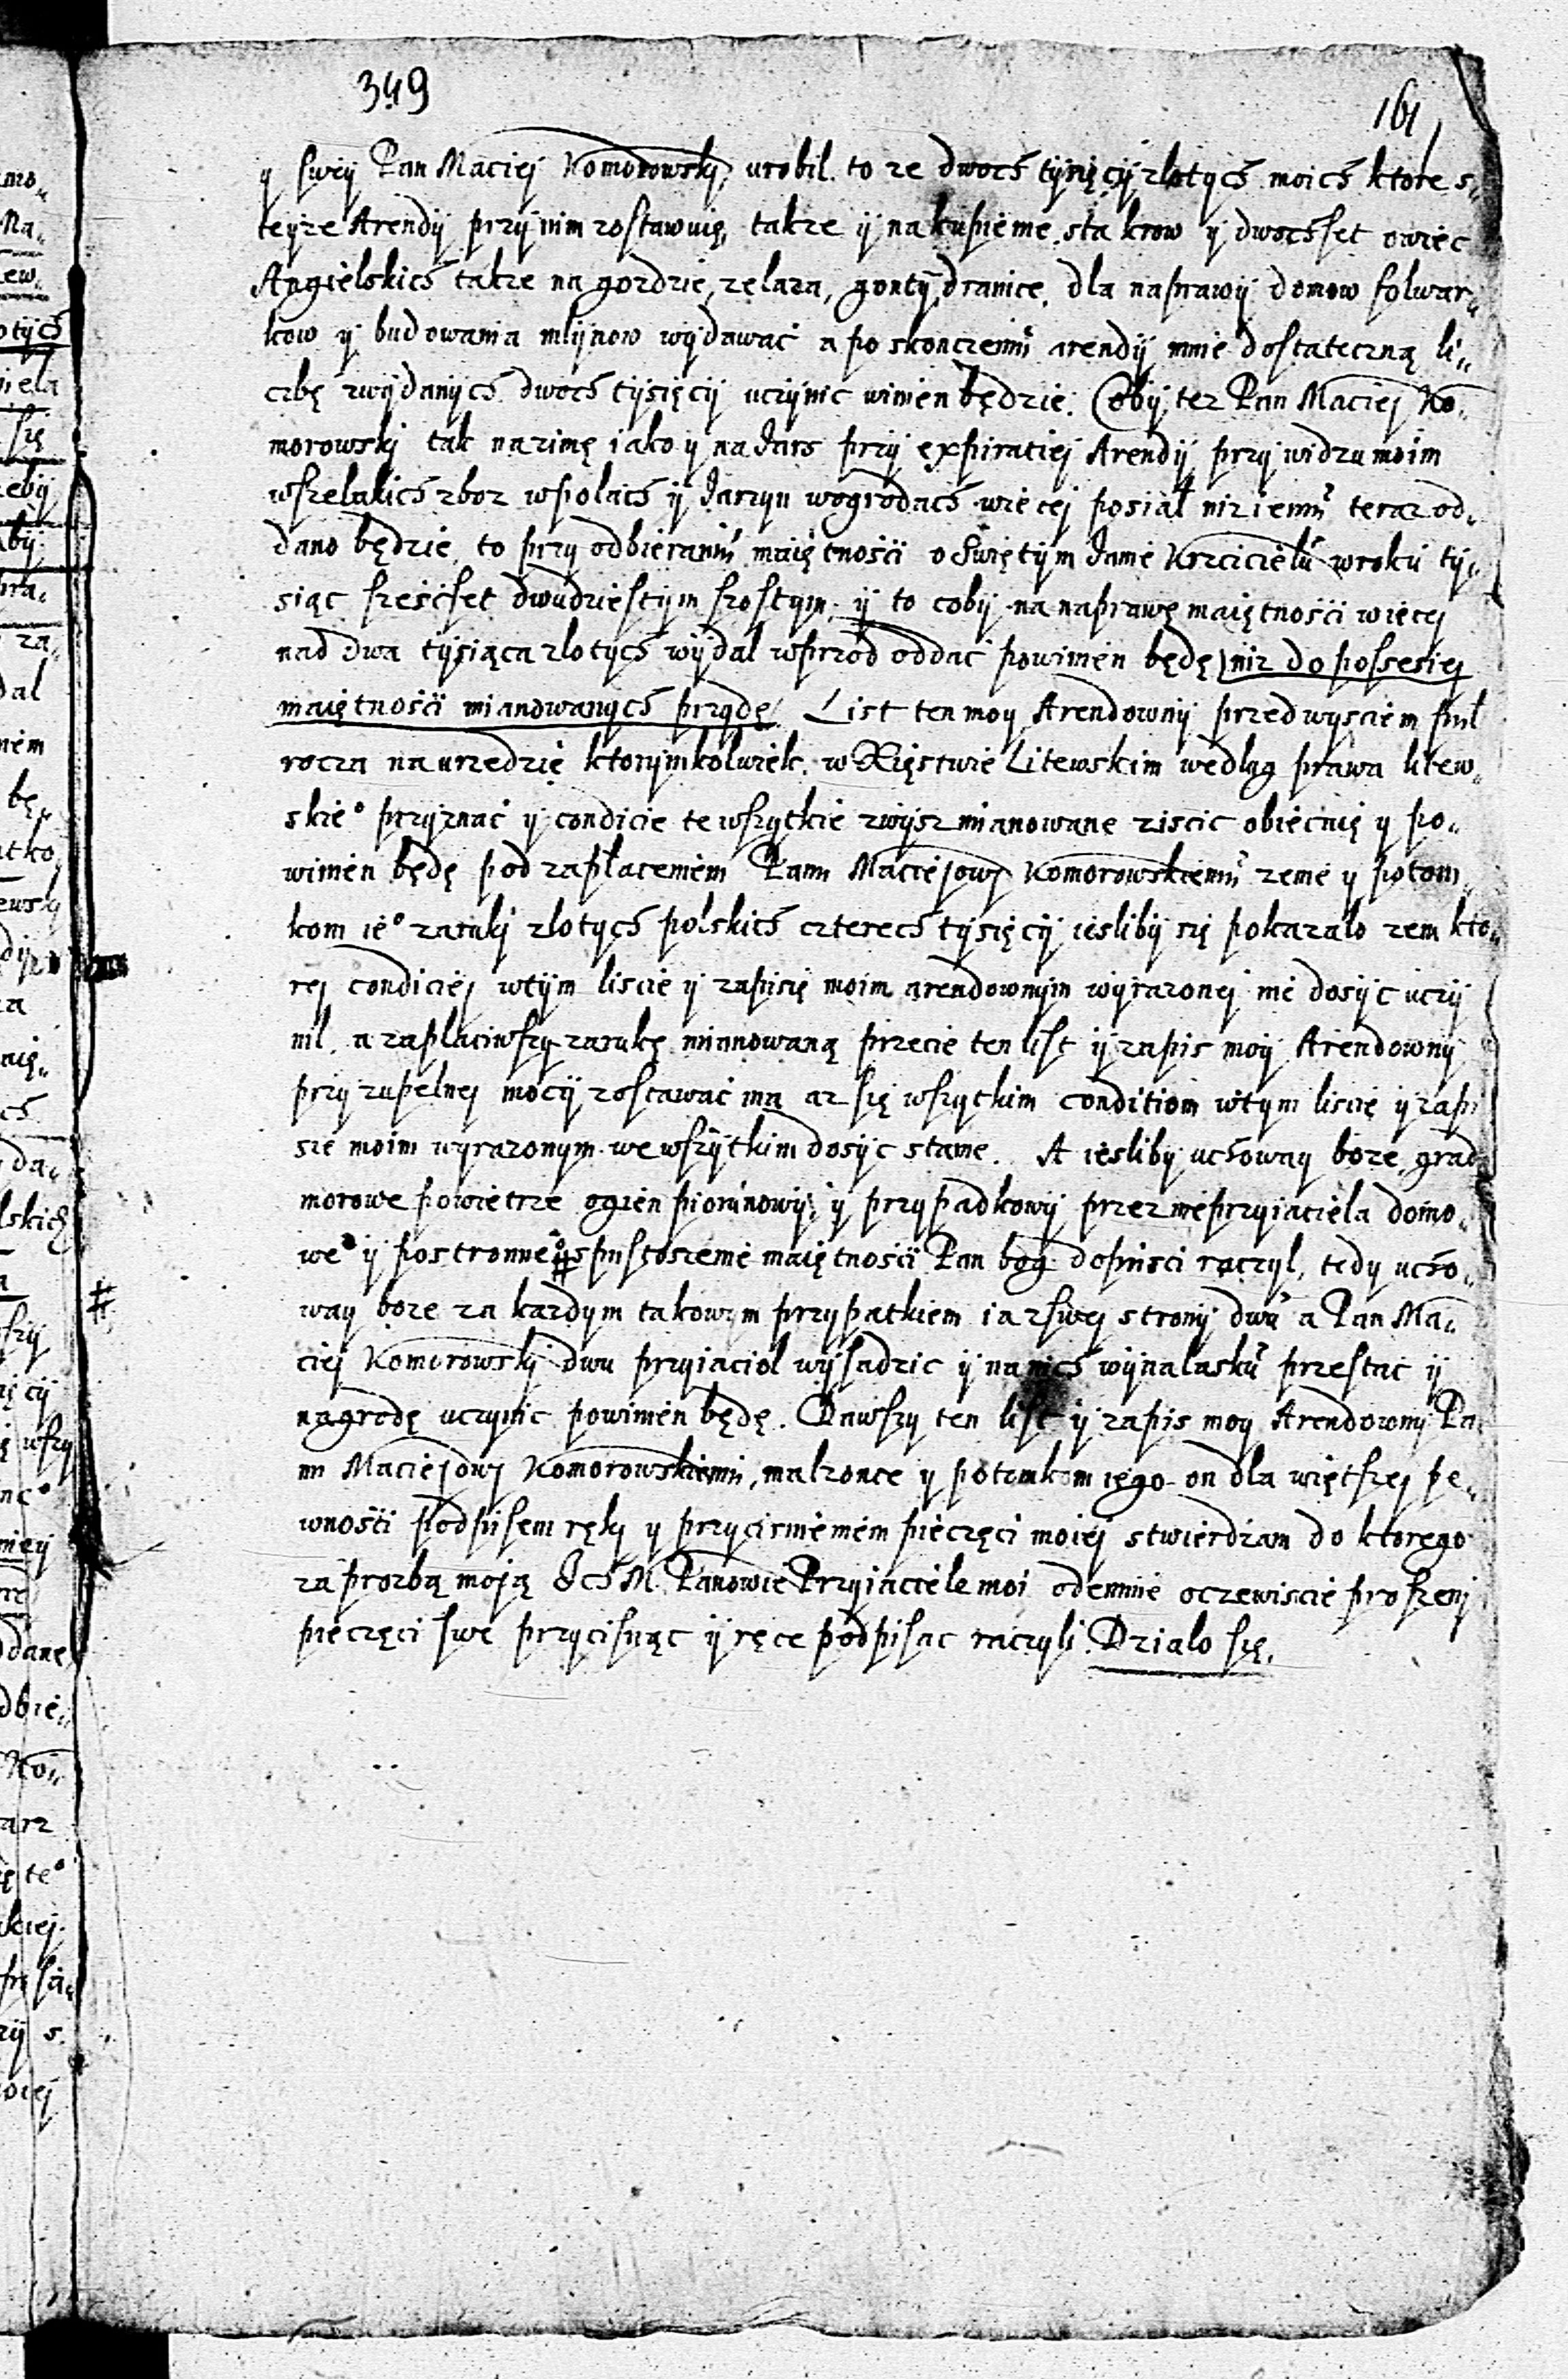 349
161
y swey Pan Maciej Komorowskj, urobil. to ze dwoch tysięcy zlotych moich ktore s„
teyze Arendy przy nim zostawuię, takze y na kupienie, sta krow y dwochset owiec
Angielskich takze na gozdzie, zelaza, gonty, dranice, dla naprawy domow folwar„
kow y budowania mlynow wydawać a po skonczeniu arendy mnie dostateczną li„
czbę zwydanych dwoch tysięcy uczynic winien będzie. Coby tez Pan Maciej Ko„
morowskj tak nazimę iako y na Jarz przy expiratiej Arendy przy widzu moim
wszelakich zboz wpolach y Jarzyn wogrodach więcej posiał niz iemu teraz od„
dano będzie, to przy odbieraniu maiętności o Swiętym Janie Krzcicielu wroku ty„
siąc sześćset dwudziestym szostym. y to coby na naprawę maiętności więcej
nad dwa tysiąca zlotych wydal wprzod oddać powinien będę niz do possesiej
maiętności mianowanych przydę. List ten moy Arendowny przed wysciem pul
rocza na urzedzie ktorymkolwiek. w Xięstwie Litewskim wedlug prawa litew„
skie° przyznać y condicie te wszytkie zwysz mianowane ziscic obiecuię y po„
winien będę pod zaplaceniem Panu Maciejowj Komorowskiemu zenie y potom„
kom ie° zarukj zlotych polskich czterech tysięcy iesliby się pokazalo zem kto„
rej condiciej wtym liscie y zapisie moim arendownym wyrazonej nie dosyc uczy
nil. a zaplaciwszy zarukę mianowaną przecie ten list y zapis moy Arendowny
przy zupelnej mocy zostawać ma az się wszytkim conditiom wtym liscie y zapi
sie moim wyrazonym we wszytkim dosyc stanie. A iesliby uchoway boze, grad
morowe powietrze ogien piorunowy, y przypadkowy przez nieprzyiaciela domo„
we° y postronne° # spustoszenie maiętności Pan bog dopusci raczyl, tedy ucho„
#
way boze za kazdym takowym przypatkiem ia zswej strony dwu a Pan Ma„
ciej Komorowskj dwu przyiaciol wysadzic y na nich wynalasku przestac y
nagrodę uczynic powinien będę. Dawszy ten list y zapis moy Arendowny Pa
nu Maciejowj Komorowskiemu, malzonce y potomkom iego on dla więtszej pe„
wnosci podpisem rękj y przycisnieniem pieczęci moiej stwierdzam do ktorego
za prozbą moją Ich M. Panowie Przyiaciele moi odemnie oczewiscie proszenj
pieczęci swe przycisnąc y ręce podpisac raczyli. Dzialo się.